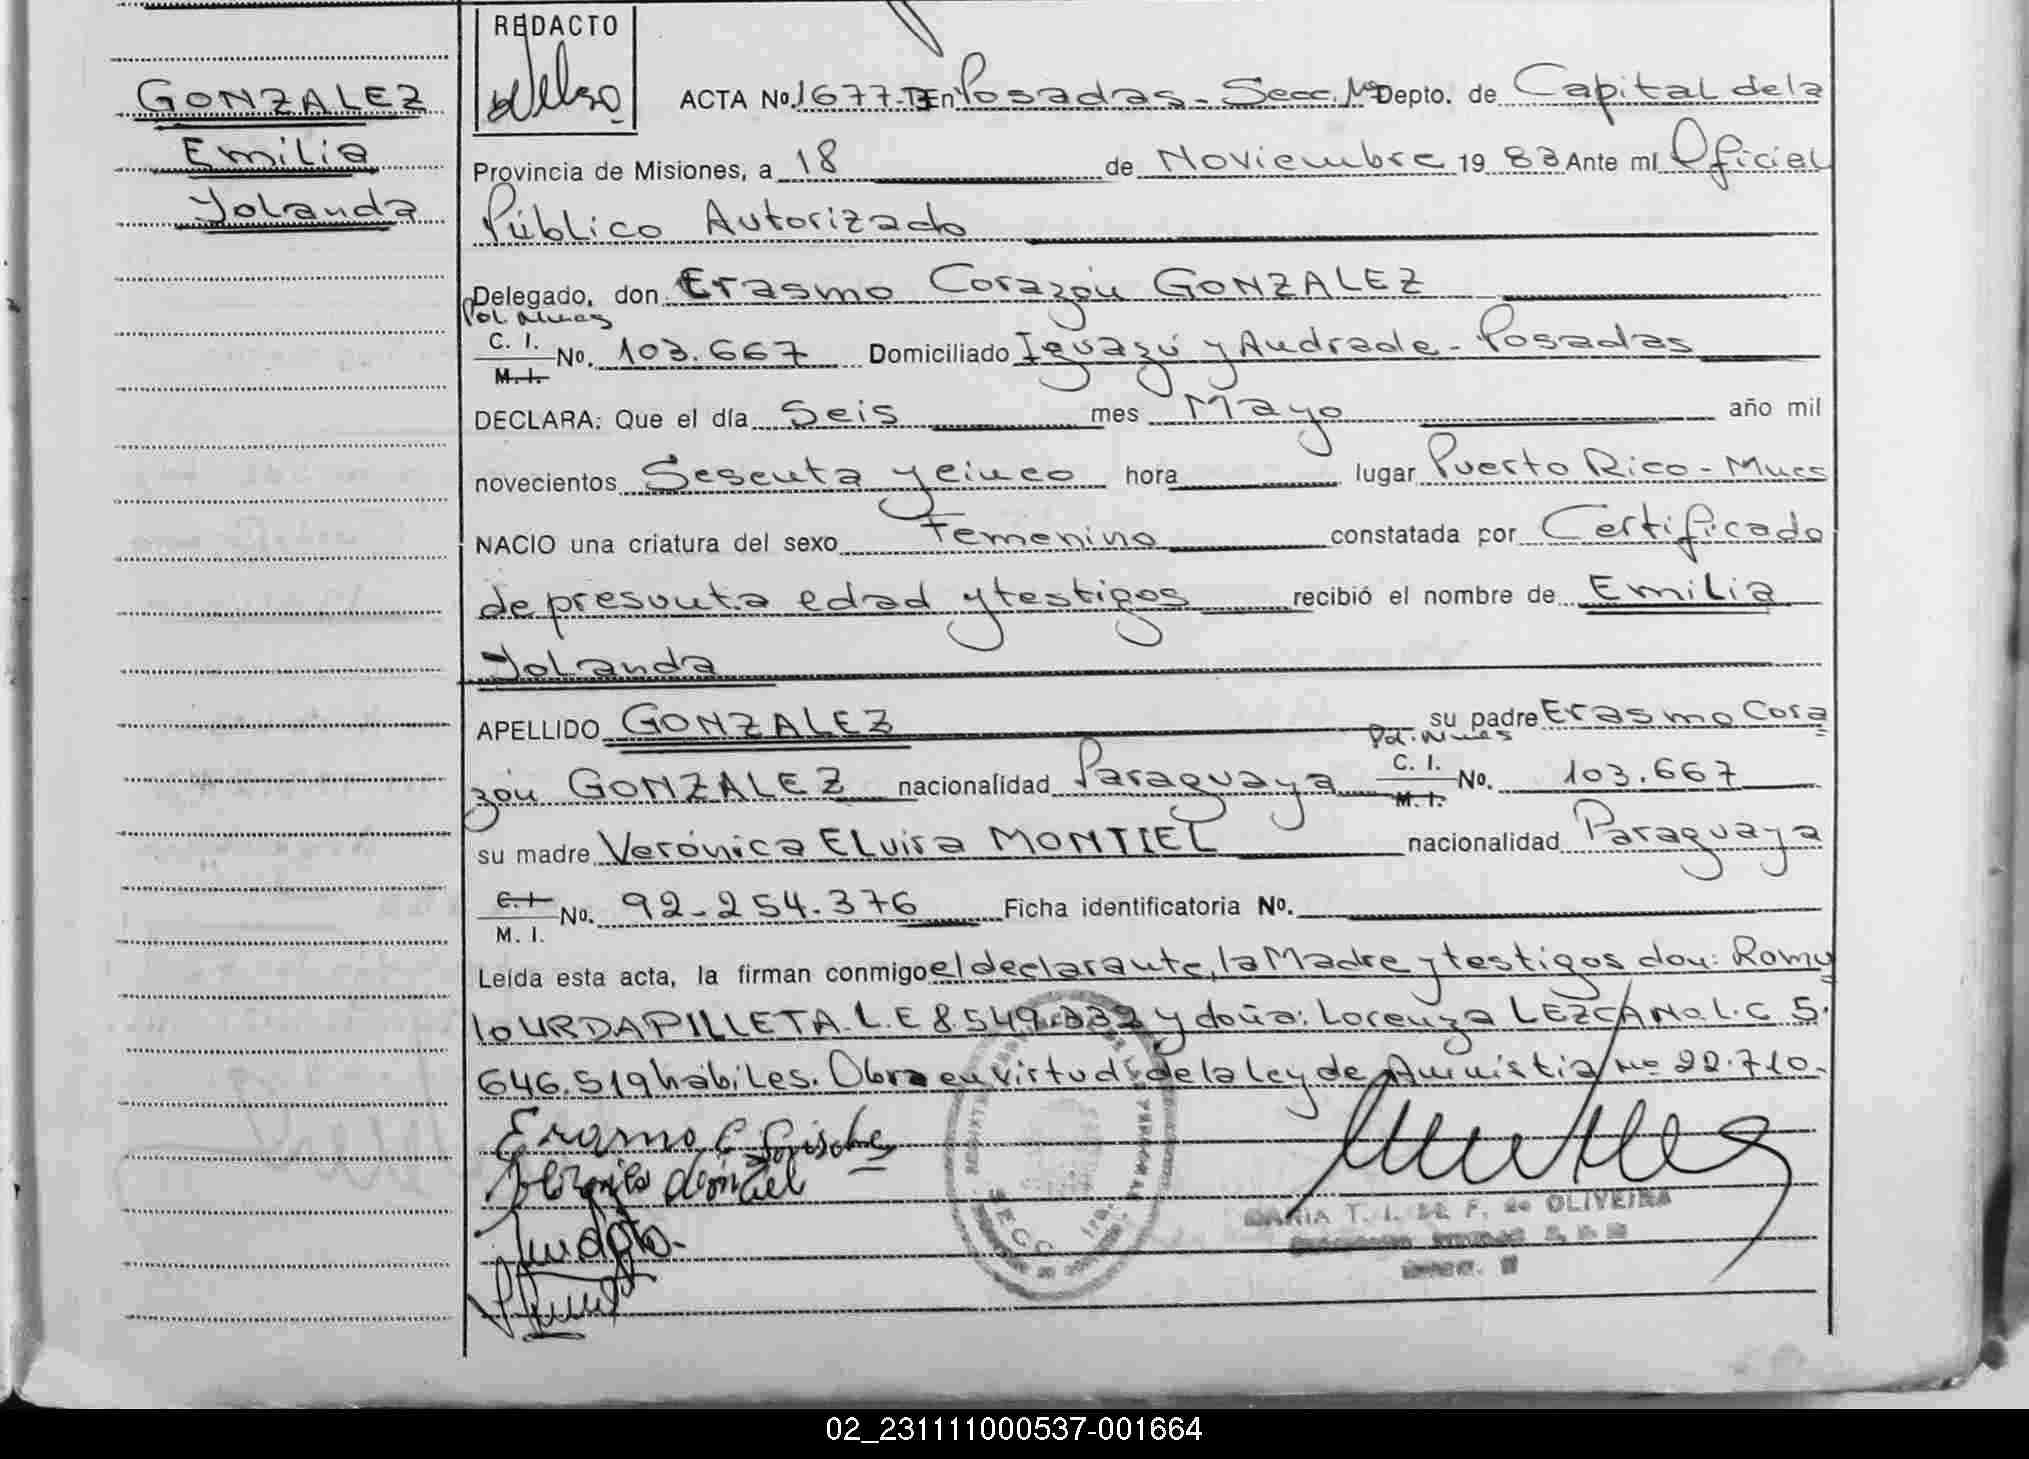 REDACTO
GONZALEZ
Emilia
Yolanda
ACTA No. 1677-T En Posadas - Secc. 1ª Depto. de Capital de la
Provincia de Misiones, a 18 de Noviembre 1983 Ante mí Oficial
Público Autorizado
Delegado, don Erasmo Corazón GONZALEZ
Pol Mnes
C. I.
M. I.
No. 103.667 Domiciliado Iguazú y Andrade - Posadas
DECLARA: Que el día Seis mes Mayo año mil
novecientos Sesenta y cinco hora lugar Puerto Rico - Mnes
NACIO una criatura del sexo Femenino constatada por Certificado
de presunta edad y testigos recibió el nombre de Emilia
Yolanda
APELLIDO GONZALEZ su padre Erasmo Cora
Pol. Mnes
zón GONZALEZ nacionalidad Paraguaya C. I. No. 103.667
M. I.
su madre Verónica Elvira MONTIEL nacionalidad Paraguaya
C. I.
M. I.
No. 92.254.376 Ficha identificatoria No.
Leída esta acta, la firman conmigo el declarante, la Madre y testigos don: Romu
lo URDAPILLETA L.E 8.549.332 y doña: Lorenza LEZCANO L.C 5.
646.519 hábiles. Obra en virtud de la ley de Amnistia Nº 22.710.
MARIA T. I. DE F. de OLIVEIRA
02_231111000537-001664